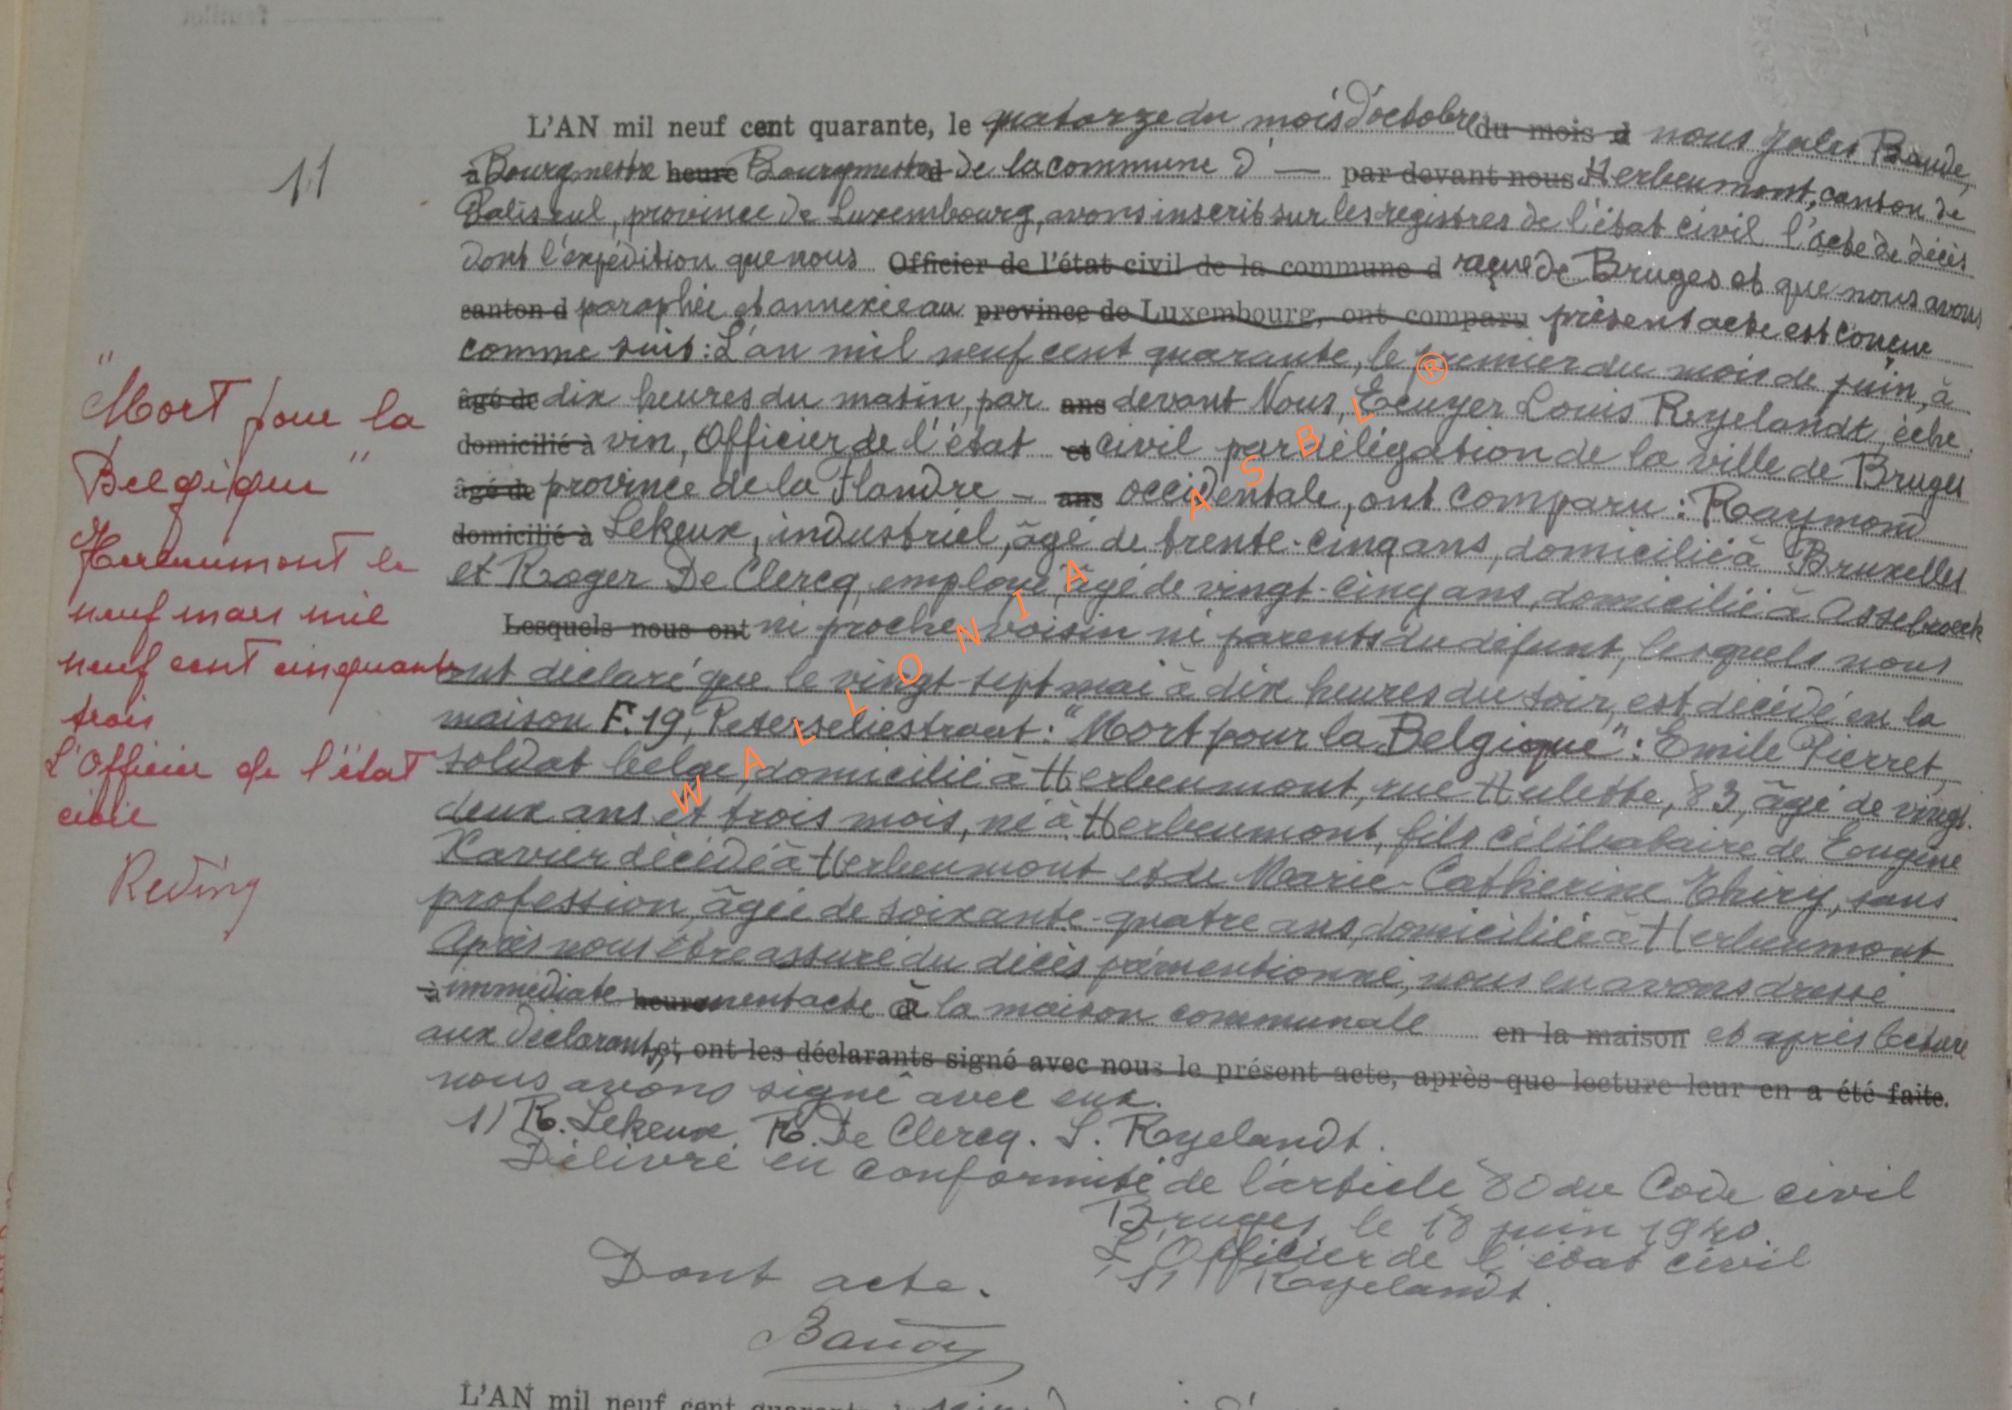 11
L'AN mil neuf cent quarante, le quatorze du mois d'octobre du mois d nous Jules Baudé,
à Bourgmestre heure Bourgmestre d de la commune d' — par devant nous Herbeumont, canton de
Paliseul, province de Luxembourg, avons inscrit sur les registres de l'état civil l'acte de décès
dont l'expédition que nous Officier de l'état civil de la commune d reçue de Bruges et que nous avons
canton d paraphée et annexée au province de Luxembourg, ont comparu présent acte est conçu
comme suit : L'an mil neuf cent quarante, le premier du mois de juin, à
âgé de dix heures du matin, par ans devant Nous, Ecuyer Louis Ryelandt, éche
domicilié à vin, Officier de l'état et civil par délégation de la ville de Bruges
âgé de province de la Flandre - ans occidentale, ont comparu : Raymond
domicilié à Lekeux, industriel, âgé de trente-cinq ans, domicilié à Bruxelles
et Roger De Clercq, employé, âgé de vingt-cinq ans, domicilié à Assebroeck
Lesquels nous ont ni proche voisin ni parents du défunt, lesquels nous
ont déclaré que le vingt-sept mai à dix heures du soir, est décédé en la
maison F. 19, Peterseliestraat : "Mort pour la Belgique" : Emile Pierret,
soldat belge, domicilié à Herbeumont, rue Hulette, 83, âgé de vingt-
deux ans et trois mois, né à Herbeumont, fils célibataire de Eugène
Xavier décédé à Herbeumont et de Marie-Catherine Thiry, sans
profession, âgée de soixante-quatre ans, domiciliée à Herbeumont
Après nous être assuré du décès prémentionné, nous en avons dressé
à immédiate heure ment acte à la maison communale en la maison et après lecture
aux déclarants, et, ont les déclarants signé avec nous le présent acte, après que lecture leur en a été faite.
nous avons signé avec eux.
s/ R. Lekeux. R. De Clercq. L. Ryelandt.
Délivré en conformité de l'article 80 du Code civil
Bruges, le 18 juin 1940
L'Officier de l'état civil
s/ Ryelandt.
Dont acte.
Baudé
"Mort pour la
Belgique"
Herbeumont le
neuf mars mil
neuf cent cinquante
trois
L'Officier de l'état
civil
Reding
WALLONIA ASBL ®
L'AN mil neuf cent quarante